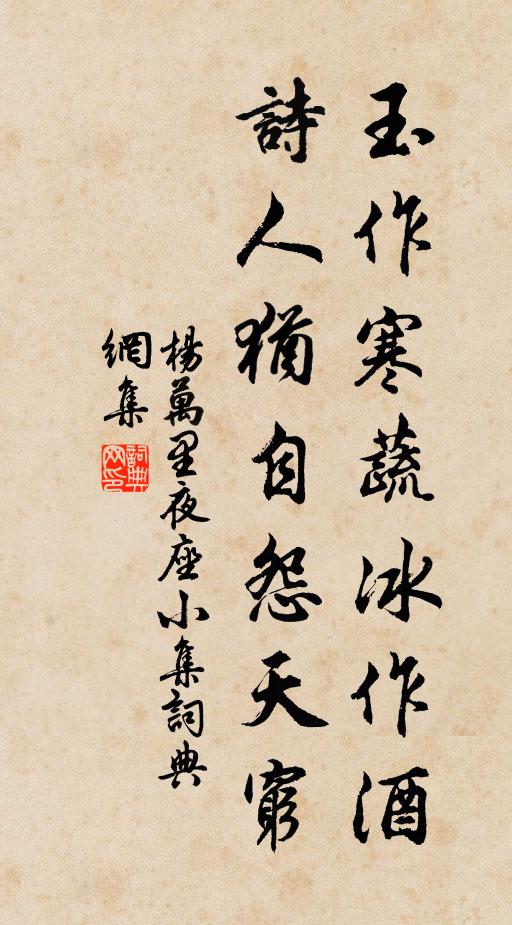 玉作寒蔬冰作酒
詩人猶自怨天窮
楊萬里夜座小集詞典
網集
詞典网印